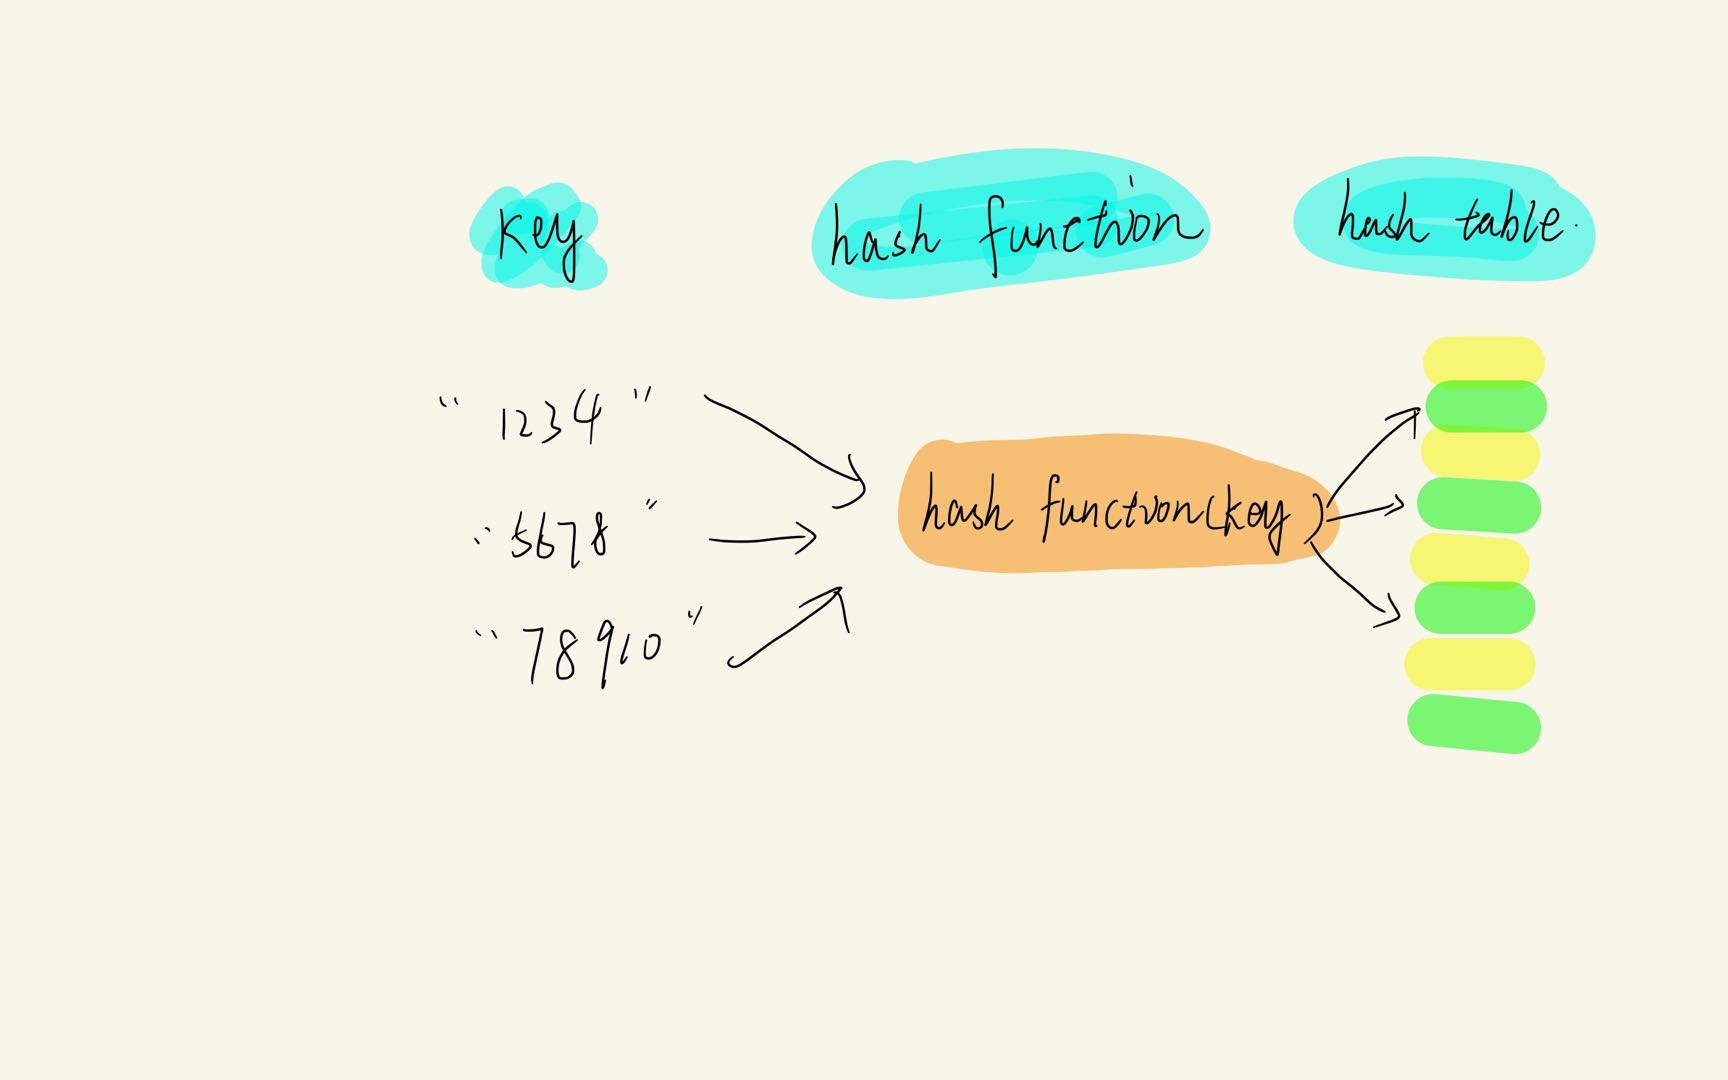 key
hash function
hash table.
"1234"
"5678"
"78910"
hash function(key)